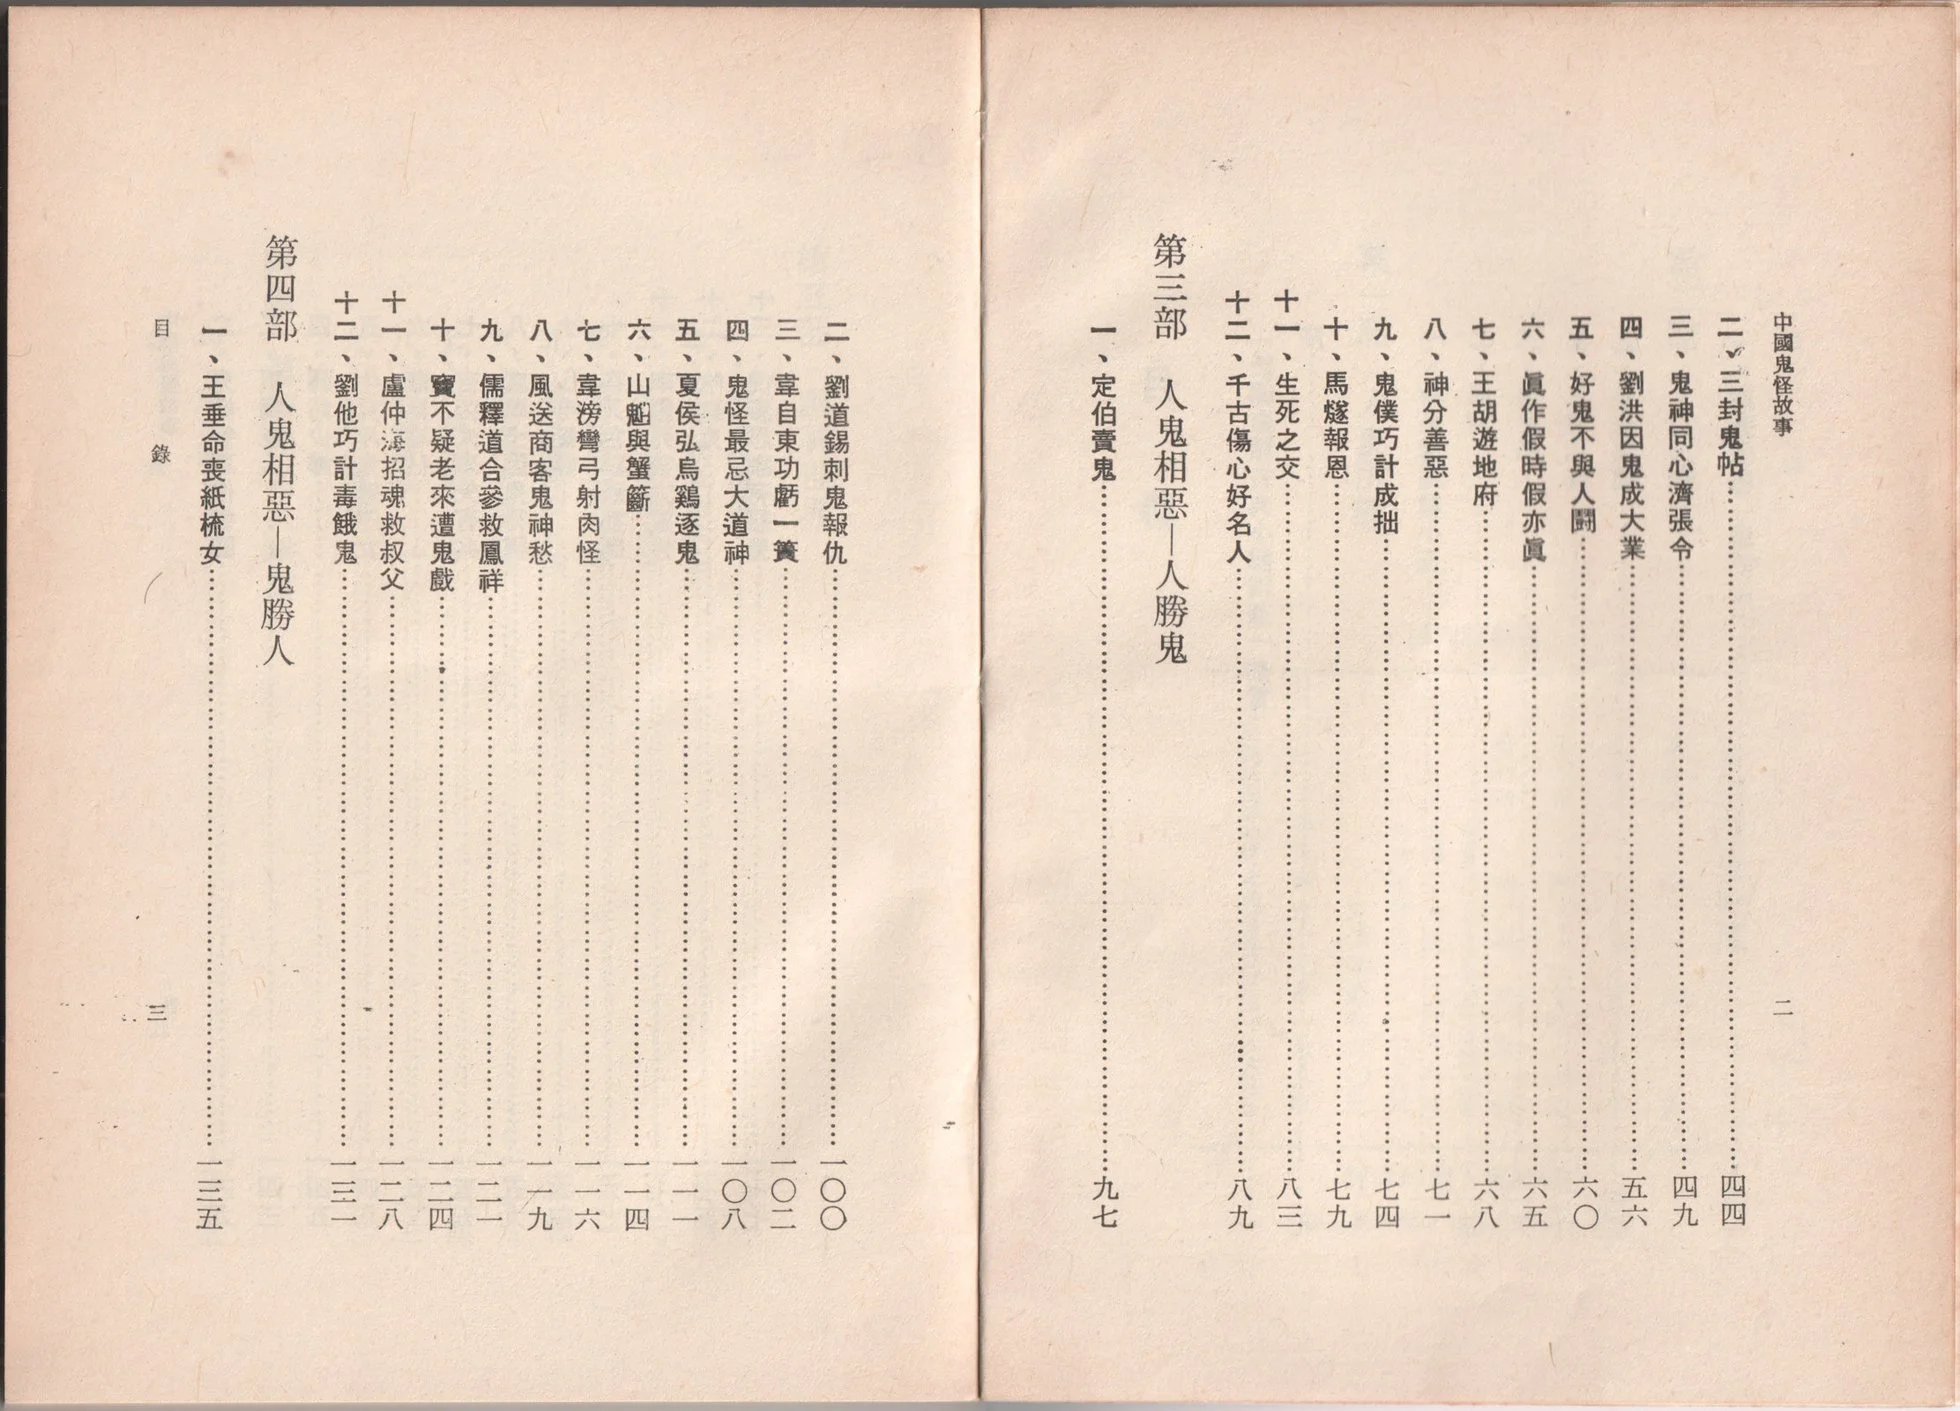 中國鬼怪故事
二
二、三封鬼帖……四四
三、鬼神同心濟張令……四九
四、劉洪因鬼成大業……五六
五、好鬼不與人鬪……六〇
六、眞作假時假亦眞……六五
七、王胡遊地府……六八
八、神分善惡……七一
九、鬼僕巧計成拙……七四
十、馬燧報恩……七九
十一、生死之交……八三
十二、千古傷心好名人……八九
第三部　人鬼相惡—人勝鬼
一、定伯賣鬼……九七
二、劉道錫刺鬼報仇……一〇〇
三、韋自東功虧一簣……一〇二
四、鬼怪最忌大道神……一〇八
五、夏侯弘烏鷄逐鬼……一一一
六、山魈與蟹籪……一一四
七、韋滂彎弓射肉怪……一一六
八、風送商客鬼神愁……一一九
九、儒釋道合參救鳳祥……一二一
十、竇不疑老來遭鬼戲……一二四
十一、盧仲海招魂救叔父……一二八
十二、劉他巧計毒餓鬼……一三一
第四部　人鬼相惡—鬼勝人
一、王垂命喪紙梳女……一三五
目錄
三